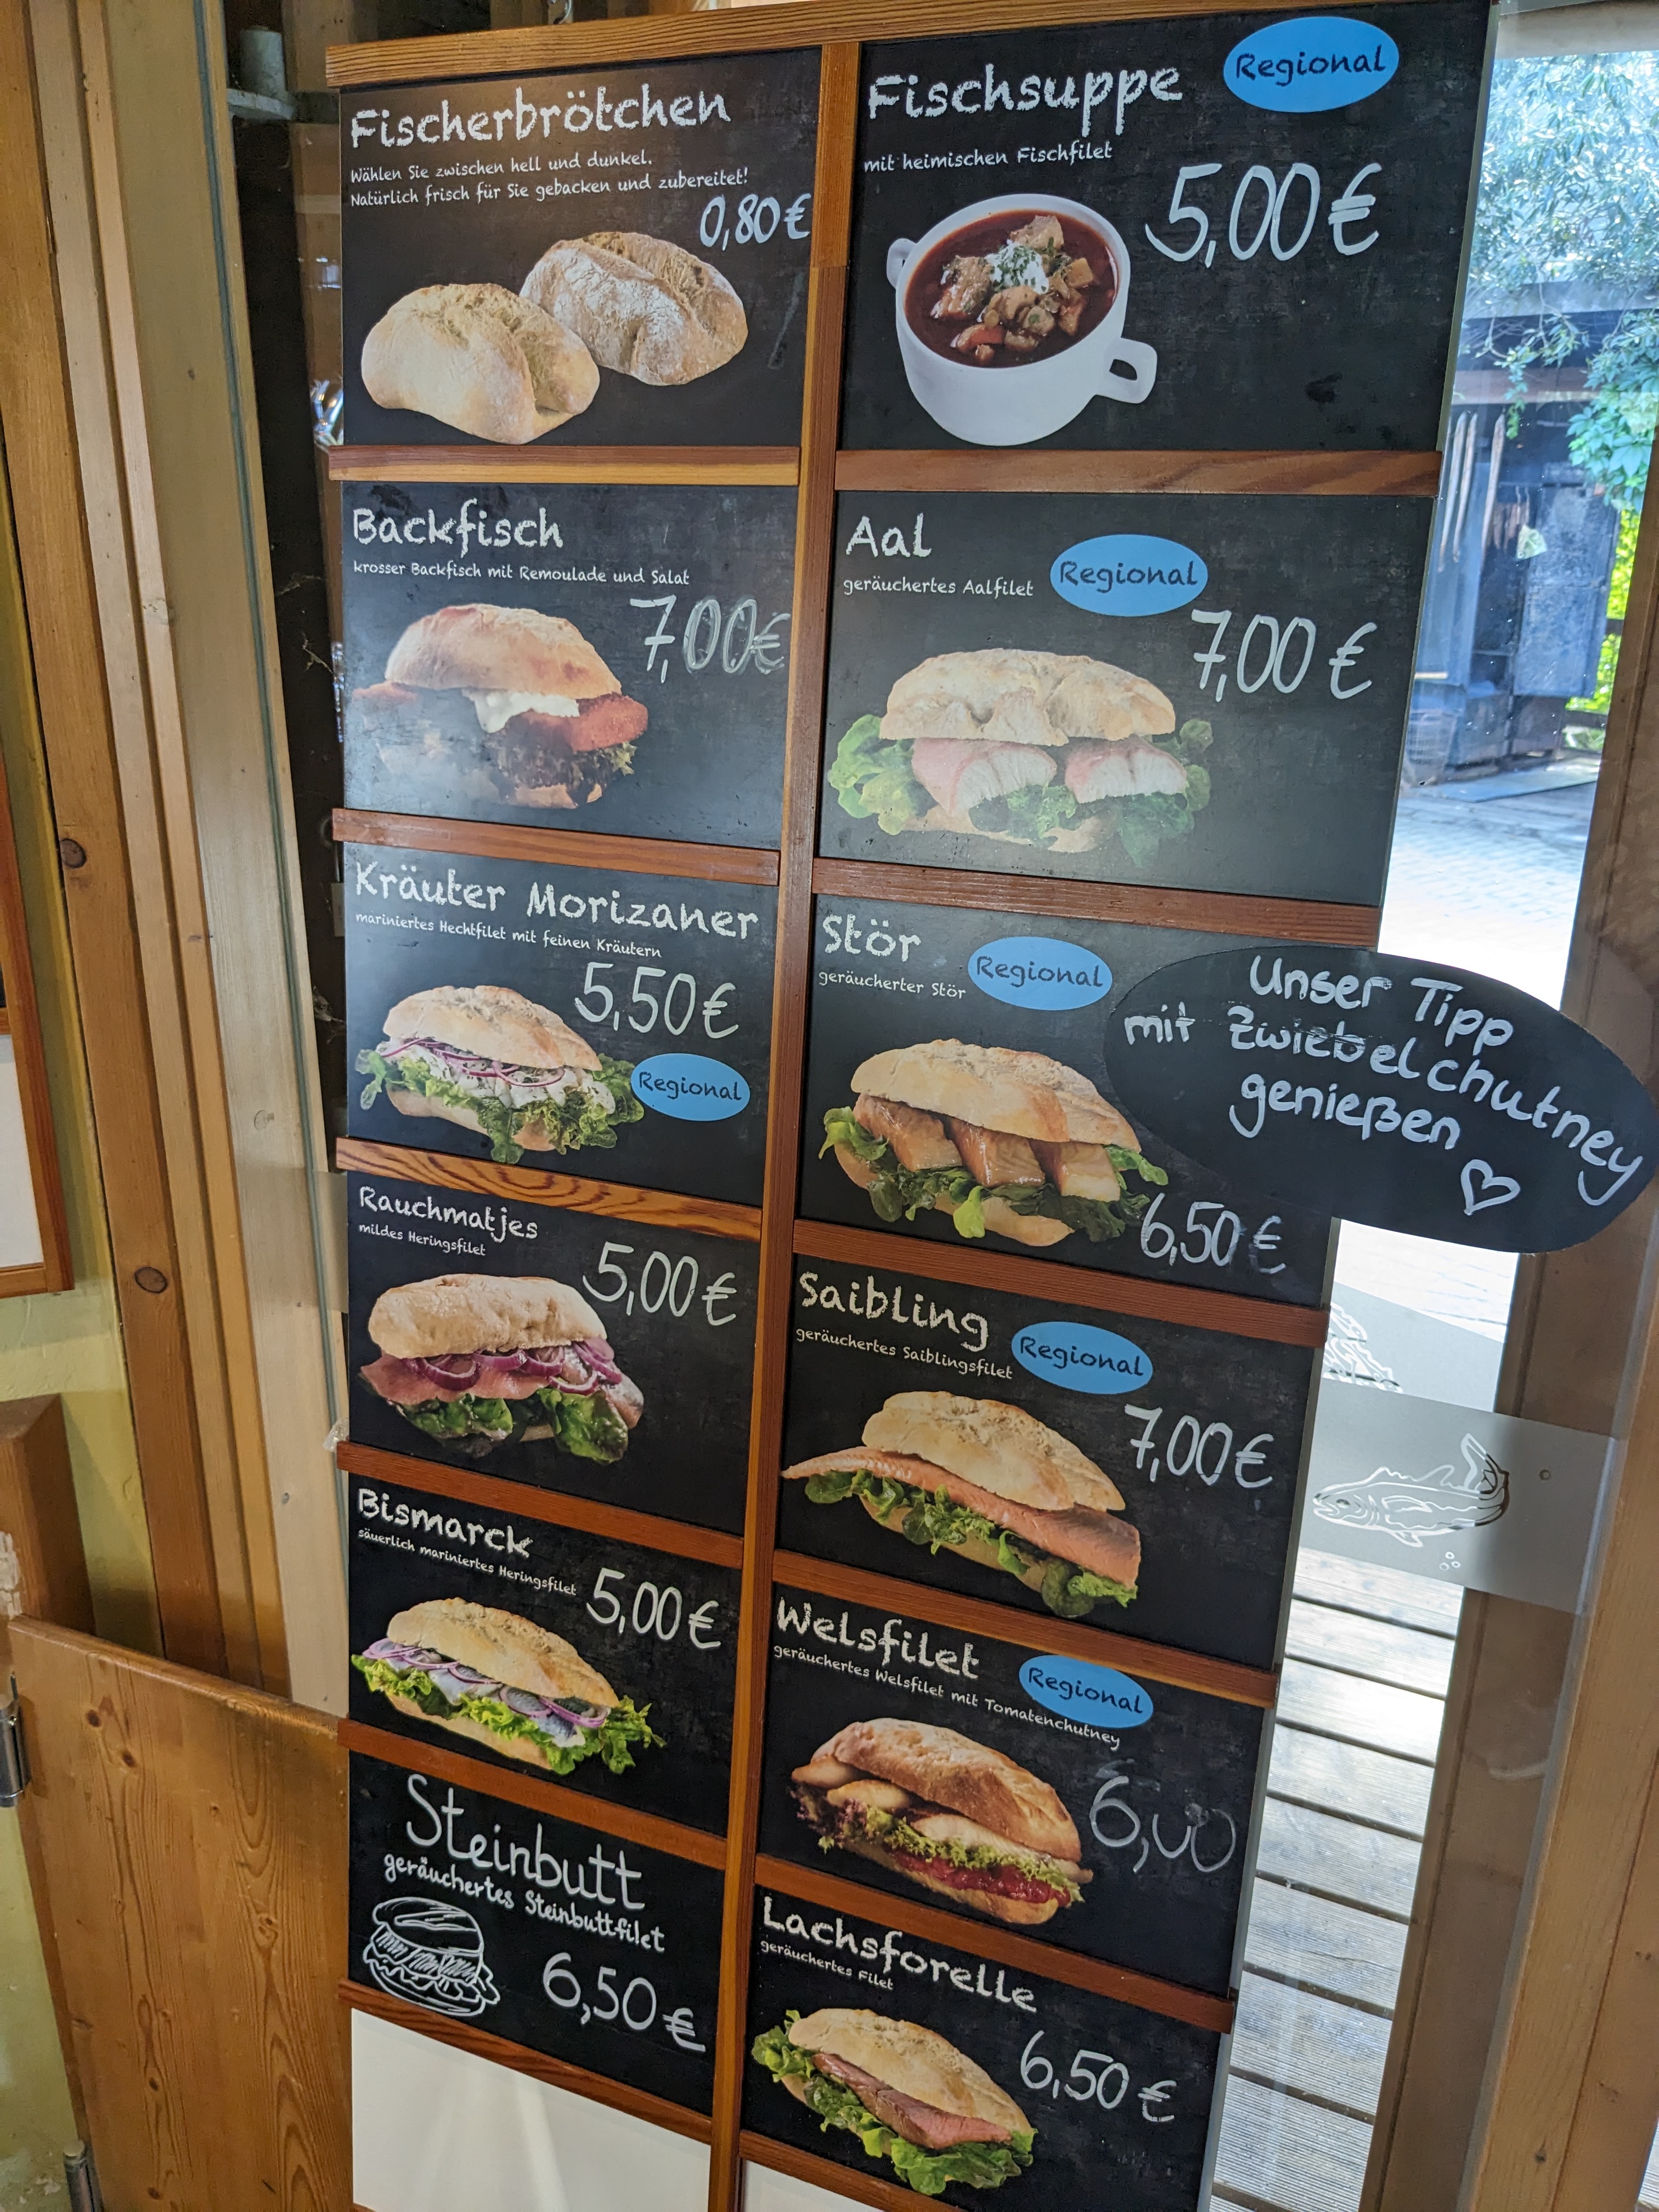 Fischerbrötchen
Wählen Sie zwischen hell und dunkel.
Natürlich frisch für Sie gebacken und zubereitet!
0,80 €
Backfisch
krosser Backfisch mit Remoulade und Salat
7,00 €
Kräuter Morizaner
mariniertes Hechtfilet mit feinen Kräutern
5,50 €
Regional
Rauchmatjes
mildes Heringsfilet
5,00 €
Bismarck
säuerlich mariniertes Heringsfilet
5,00 €
Steinbutt
geräuchertes Steinbuttfilet
6,50 €
Fischsuppe
Regional
mit heimischen Fischfilet
5,00 €
Aal
geräuchertes Aalfilet
Regional
7,00 €
Stör
geräucherter Stör
Regional
Unser Tipp
mit Zwiebelchutney
genießen
6,50 €
Saibling
geräuchertes Saiblingsfilet
Regional
7,00 €
Welsfilet
geräuchertes Welsfilet mit Tomatenchutney
Regional
6,00
Lachsforelle
geräuchertes Filet
6,50 €